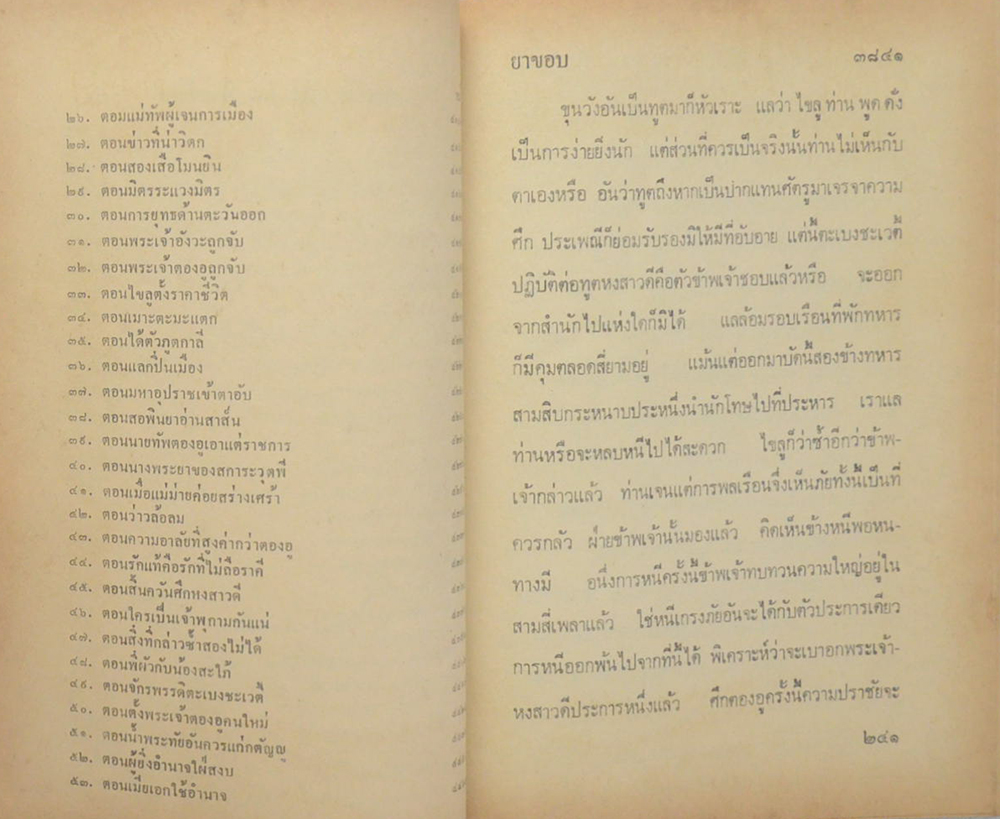 ๒๖. ตอนแม่ทัพผู้เจนการเมือง
๒๗. ตอนข่าวที่น่าวิตก
๒๘. ตอนสองเสือโมนยิน
๒๙. ตอนมิตรระแวงมิตร
๓๐. ตอนการยุทธด้านตะวันออก
๓๑. ตอนพระเจ้าอังวะถูกจับ
๓๒. ตอนพระเจ้าตองอูถูกจับ
๓๓. ตอนไขลูตั้งราคาชีวิต
๓๔. ตอนเมาะตะมะแตก
๓๕. ตอนได้ตัวภูตกาลี
๓๖. ตอนแลกปืนเมือง
๓๗. ตอนมหาอุปราชเข้าตาอับ
๓๘. ตอนสอพินยาอ่านสาส์น
๓๙. ตอนนายทัพตองอูเอาแต่ราชการ
๔๐. ตอนนางพระยาของสการะวุตพี
๔๑. ตอนเมื่อแม่ม่ายค่อยสร่างเศร้า
๔๒. ตอนว่าวล้อลม
๔๓. ตอนความอาลัยที่สูงค่ากว่าตองอู
๔๔. ตอนรักแท้คือรักที่ไม่ลือราคี
๔๕. ตอนสิ้นควันศึกหงสาวดี
๔๖. ตอนใครเป็นเจ้าพุกามกันแน่
๔๗. ตอนสิ่งที่กล่าวซ้ำสองไม่ได้
๔๘. ตอนพี่ผัวกับน้องสะใภ้
๔๙. ตอนจักรพรรดิตะเบงชะเวตี้
๕๐. ตอนตั้งพระเจ้าตองอูคนใหม่
๕๑. ตอนน้ำพระทัยอันควรแก่กตัญญู
๕๒. ตอนผู้ยิ่งอำนาจใฝ่สงบ
๕๓. ตอนเมียเอกใช้อำนาจ
ยาขอบ ๓๘๔๑
ขุนวังอันเป็นทูตมาก็หัวเราะ แลว่า ไขลู ท่าน พูด ดั่ง
เป็นการง่ายยิ่งนัก แต่ส่วนที่ควรเป็นจริงนั้นท่านไม่เห็นกับ
ตาเองหรือ อันว่าทูตถึงหากเป็นปากแทนศัตรูมาเจรจาความ
ศึก ประเพณีก็ย่อมรับรองมิให้มีที่อับอาย แต่นี้ตะเบงชะเวตี้
ปฏิบัติต่อทูตหงสาวดีคือตัวข้าพเจ้าชอบแล้วหรือ จะออก
จากสำนักไปแห่งใดก็มิได้ แลล้อมรอบเรือนที่พักทหาร
ก็มีคุมตลอดสี่ยามอยู่ แม้นแต่ออกมาบัดนี้สองข้างทหาร
สามสิบกระหนาบประหนึ่งนำนักโทษไปที่ประหาร เราแล
ท่านหรือจะหลบหนีไปได้สะดวก ไขลูก็ว่าซ้ำอีกว่าข้าพ-
เจ้ากล่าวแล้ว ท่านเจนแต่การพลเรือนจึ่งเห็นภัยทั้งนี้เป็นที่
ควรกลัว ฝ่ายข้าพเจ้านั้นมองแล้ว คิดเห็นช้างหนีพอหน-
ทางมี อนึ่งการหนีครั้งนี้ข้าพเจ้าทบทวนความใหญ่อยู่ใน
สามสี่เพลาแล้ว ใช่หนีเกรงภัยอันจะได้กับตัวประการเดียว
การหนีออกพ้นไปจากที่นี้ได้ พิเคราะห์ว่าจะเบาอกพระเจ้า-
หงสาวดีประการหนึ่งแล้ว ศึกตองอูครั้งนี้ความปราชัยจะ
๒๔๑